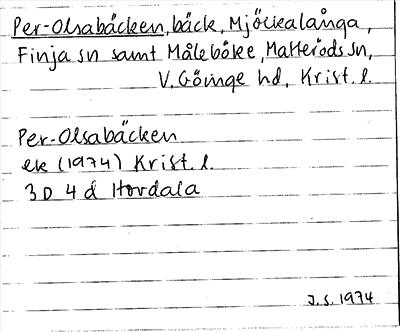 Per-Olsabäcken, bäck, Mjöckalånga,
Finja sn samt Måleböke, Matteröds sn,
V. Göinge hd, Krist. l.
Per-Olsabäcken
ek (1974) Krist. l.
3 D 4 d Hovdala
J. S. 1974